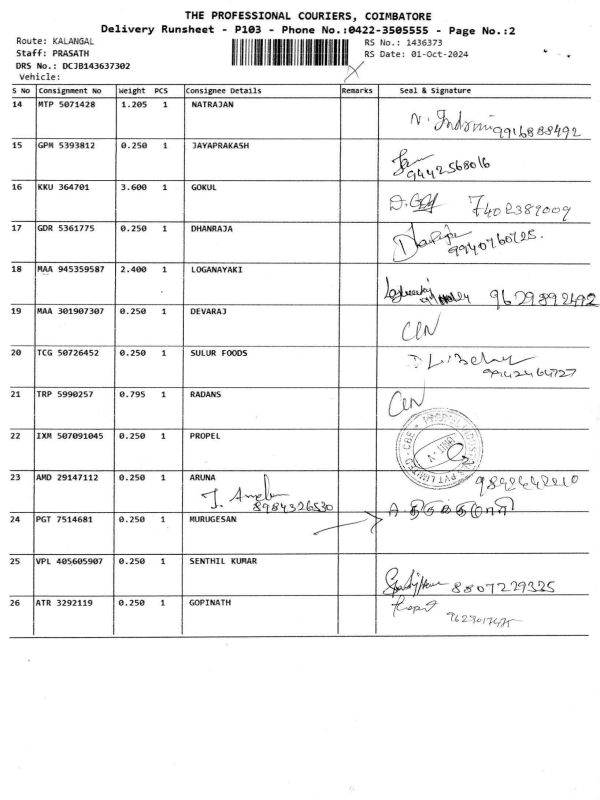 THE PROFESSIONAL COURIERS, COIMBATORE
Delivery Runsheet - P103 - Phone No.:0422-3505555 - Page No.:2
Route: KALANGAL
RS No.: 1436373
Staff: PRASATH
RS Date: 01-Oct-2024
DRS No.: DCJB143637302
Vehicle:
S No Consignment No Weight PCS Consignee Details Remarks Seal & Signature
14 MTP 5071428 1.205 1 NATRAJAN
9916888492
15 GPM 5393812 0.250 1 JAYAPRAKASH
9442568016
16 KKU 364701 3.600 1 GOKUL
7402389009
17 GDR 5361775 0.250 1 DHANRAJA
9940760725.
18 MAA 945359587 2.400 1 LOGANAYAKI
9629892492
19 MAA 301907307 0.250 1 DEVARAJ
20 TCG 50726452 0.250 1 SULUR FOODS
21 TRP 5990257 0.795 1 RADANS
22 IXM 507091045 0.250 1 PROPEL
23 AMD 29147112 0.250 1 ARUNA
8984326530
24 PGT 7514681 0.250 1 MURUGESAN
25 VPL 405605907 0.250 1 SENTHIL KUMAR
8807229325
26 ATR 3292119 0.250 1 GOPINATH